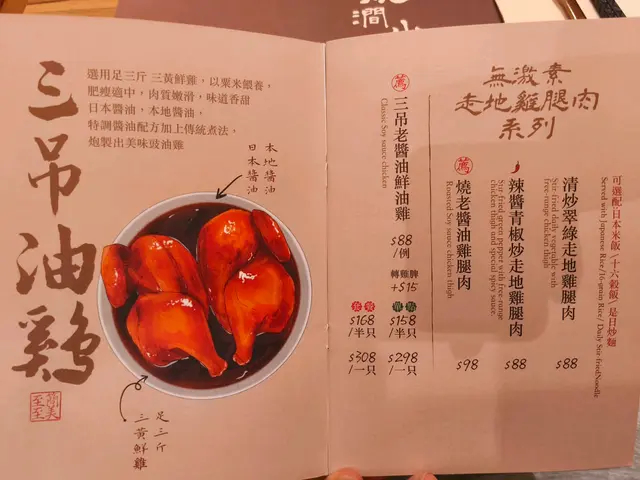 三吊油鷄
選用足三斤 三黃鮮雞，以粟米餵養，
肥瘦適中，肉質嫩滑，味道香甜
日本醬油，本地醬油，
特調醬油配方加上傳統煮法，
炮製出美味豉油雞
本地醬油
日本醬油
足三斤
三黃鮮雞
無激素
走地雞腿肉
系列
可選配日本米飯\十六穀飯\是日炒麵
Served with Japanese Rice/16-grain Rice/ Daily Stir-friedNoodle
清炒翠綠走地雞腿肉
Stir-fried daily vegetable with
free-range chicken thigh
$88
辣醬青椒炒走地雞腿肉
Stir fried green pepper with free-range
chicken thigh and special spicy sauce.
$88
薦
燒老醬油雞腿肉
Roasted Soy sauce chicken thigh
$98
薦
三吊老醬油鮮油雞
Classic Soy sauce chicken
$88
/例
轉雞髀
+$15
套餐
$168
/半只
$308
/一只
單點
$158
/半只
$298
/一只